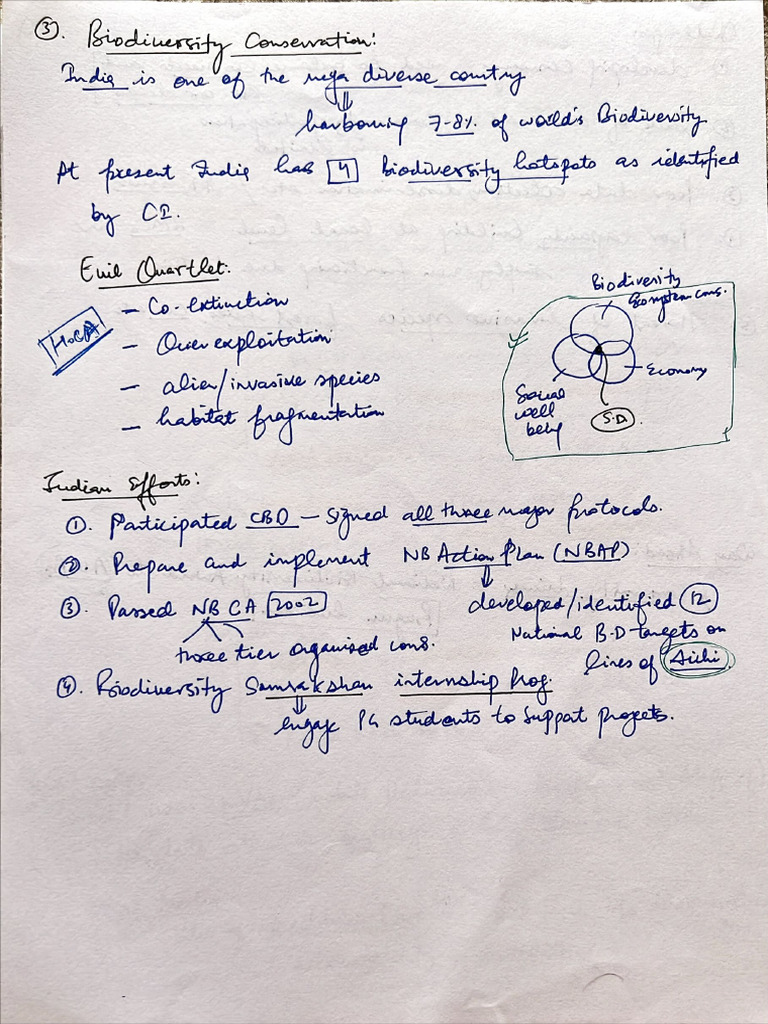 ③. Biodiversity Conservation:
India is one of the mega diverse country
⇓
harbouring 7-8% of world's Biodiversity
At present India has 4 Biodiversity hotspots as identified
by CI.
Evil Quartlet:
– Co-extinction
– Over exploitation
– alien/invasive species
– habitat fragmentation
H.C.A
Biodiversity
Ecosystem cons.
Economy
Social
well
being
S.D.
Indian Efforts:
①. Participated CBD – signed all three major protocols.
②. Prepare and implement NB Action Plan (NBAP)
⇓
developed/identified 12
National B-D targets on
lines of Aichi
③. Passed NBCA 2002
three tier organised cons.
④. Biodiversity Samrakshan internship Prog.
⇓
engage PG students to support projects.